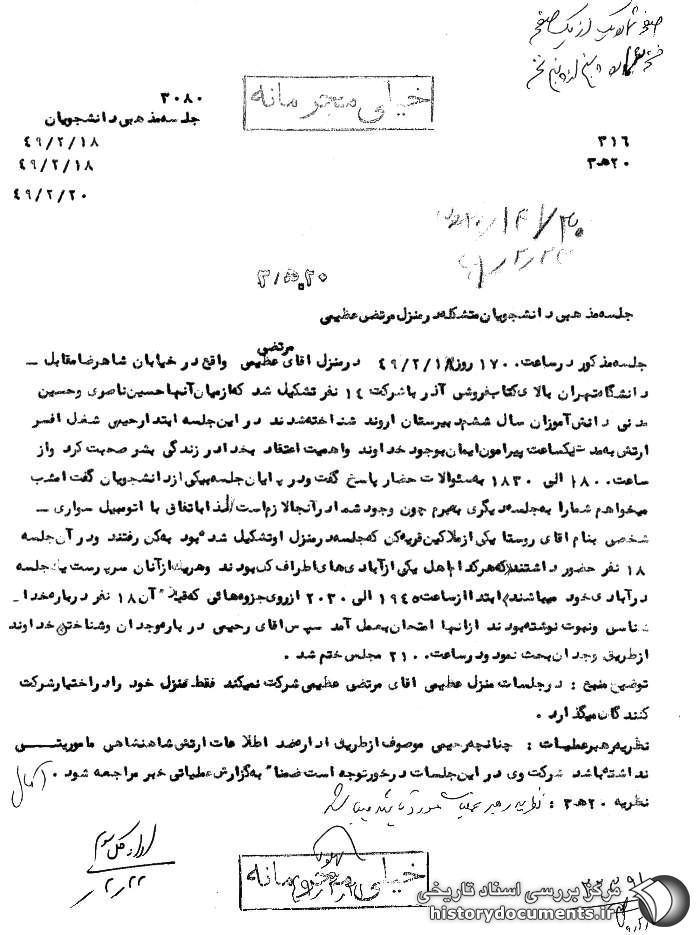 خیلی محرمانه
۳۰۸۰
جلسه مذهبی دانشجویان
۴۹/۲/۱۸
۳۱۶
۴۹/۲/۱۸
۲۰ه۳
۴۹/۲/۲۰
جلسه مذهبی دانشجویان متشکله در منزل مرتضی عظیمی
مرتضی
جلسه مذکور در ساعت ۱۷۰۰ روز ۴۹/۲/۱۸ در منزل اقای عظیمی واقع در خیابان شاهرضا مقابل ــ
دانشگاه تهران بالای کتاب فروشی آذر با شرکت ۱۴ نفر تشکیل شد که از میان آنها حسین ناصری و حسین
مدنی دانش آموزان سال ششم دبیرستان اروند شناخته شدند در این جلسه ابتدا رحیمی شغل افسر
ارتش به مدت یکساعت پیرامون ایمان بوجود خداوند واهمیت اعتقاد بخدا در زندگی بشر صحبت کرد واز
ساعت ۱۸۰۰ الی ۱۸۳۰ به سئوالات حضار پاسخ گفت ودر پایان جلسه بیکی از دانشجویان گفت امشب
میخواهم شمارا به جلسه دیگری به برم چون وجود شما در آنجا لازم است لذا باتفاق با اتومبیل سواری ــ
شخصی بنام اقای روستا یکی از ملاکین قریه کن که جلسه در منزل او تشکیل شده بود به کن رفتند ودر آن جلسه
۱۸ نفر حضور داشتند که هر کدام اهل یکی از آبادی های اطراف کن بودند وهریک از آنان سرپرست یک جلسه
در آبادی خود میباشند ابتدا از ساعت ۱۹۴۵ الی ۲۰۳۰ از روی جزوه هائی که قبلا" آن ۱۸ نفر درباره خدا ــ
شناسی ونبوت نوشته بودند از انها امتحان بعمل آمد سپس اقای رحیمی در باره وجدان وشناختن خداوند
از طریق وجدان بحث نمود ودر ساعت ۲۱۰۰ مجلس ختم شد .
توضیح منبع : در جلسات منزل عظیمی اقای مرتضی عظیمی شرکت نمیکند فقط منزل خود را در اختیار شرکت
کنندگان میگذارد .
نظریه رهبر عملیات : چنانچه رحیمی موصوف از طریق اداره ضد اطلاعات ارتش شاهنشاهی ماموریتــی
نداشته باشد شرکت وی در این جلسات در خور توجه است ضمنا" به گزارش عملیاتی خبر مراجعه شود .
نظریه ۲۰ه۳ : نظریه رهبر عملیات مورد تایید میباشد
اداره کل سوم
۲/۲۲
خیلی محرمانه
مرکز بررسی اسناد تاریخی
historydocuments.ir